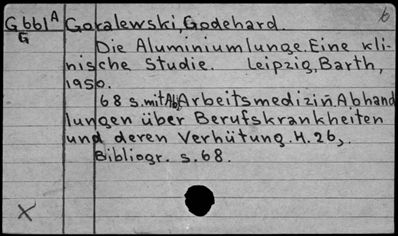 Gbb1A Goralewski, Godehard. 6
G
Die Aluminiumlunge. Eine kli-
nische Studie. Leipzig, Barth,
1950.
68 s. mit Ab. Arbeitsmedizin. Abhand
lungen über Berufskrankheiten
und deren Verhütung. H. 26,.
Bibliogr. s. 68.
X